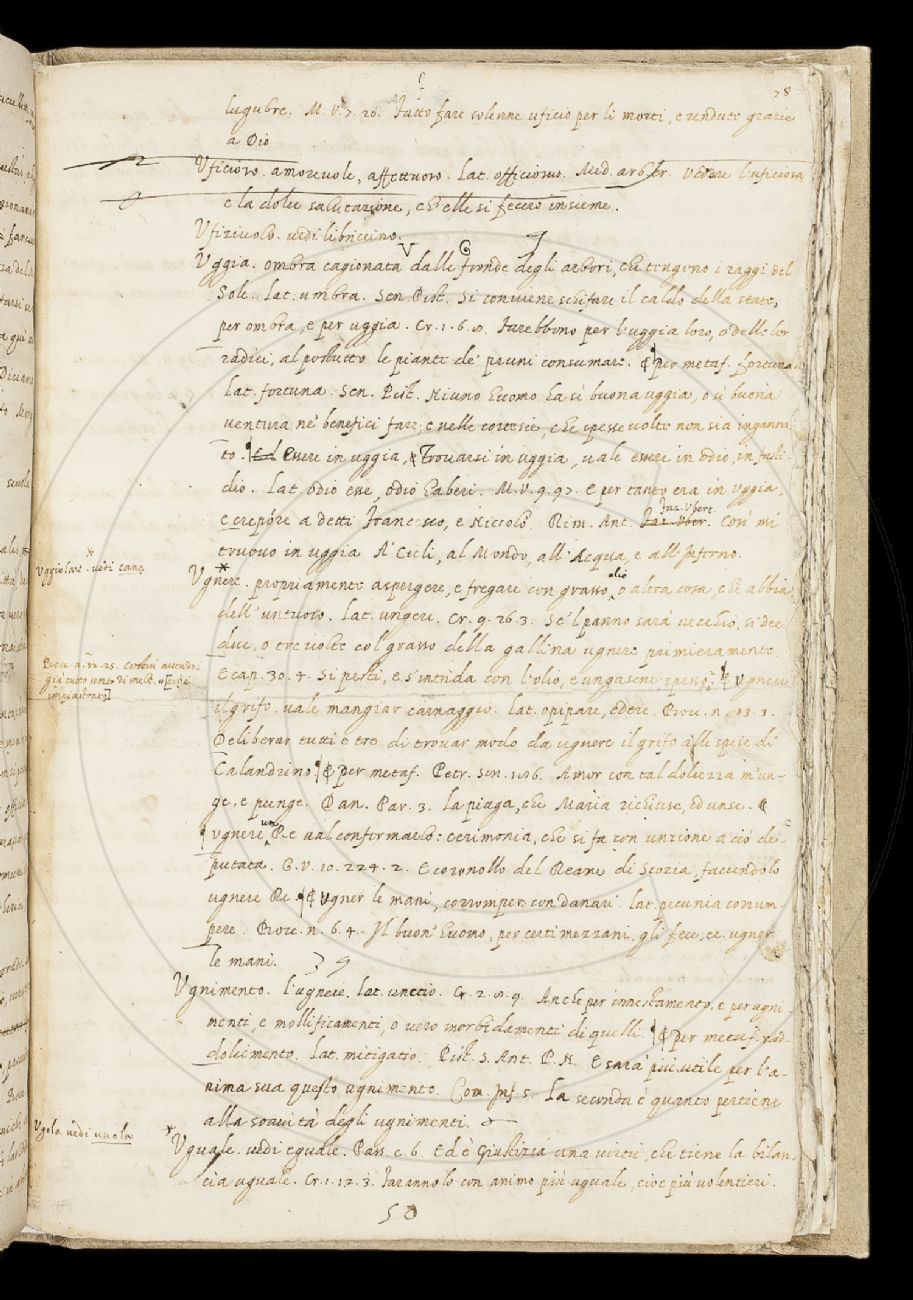 38
lugubre. M. V. 7. 20. Fatto fare solenne uficio per li morti, e renduto grazie
a Dio
Uficioso. amorevole, affettuoso. Lat. officiosus. Med. arb. cr. Vedere l'uficiosa,
e la dolce salutazione, ch'elle si fecero insieme.
Ufiziuolo. vedi libriccino.
Uggia. ombra cagionata dalle fronde degli arbori, che tengono i raggi del
Sole. lat. umbra. Sen. Pist. Si conviene schifare il caldo della state,
per ombra, e per uggia. Cr. 1. 6. Farebbono per l'uggia loro, o delle lor
radici, al postutto le piante de' pruni consumare. ¶ per metaf. fortuna
Lat. fortuna. Sen. Pist. Niuno huomo ha sì buona uggia, o sì buona
ventura ne' benefici fare, e nelle cortesie, che spesse volte non sia inganna
to. ¶ Essere in uggia, & Trovarsi in uggia, vale essere in odio, in fasti-
dio. Lat. odio esse, odio haberi. M. V. 9. 97. E per tanto era in uggia,
e crepóre a detti Francesco, e Niccolò. Rim. Ant. Faz. Ubert. Così mi
truovo in uggia A' Cieli, al Mondo, all'Acqua, e all'Inferno.
* Uggiolare. vedi cane
* Ugnere. propriamente aspergere, e fregare con grasso, olio o altra cosa, che abbia
dell'untuoso. Lat. ungere. Cr. 9. 26. 3. Se'l panno sarà vecchio, si dee
due, o tre volte col grasso della gallina ugnere primieramente.
E cap. 30. 4. Si pesti, e s'intrida con l'olio, e ungasene spesso. ¶ Ugnere
Bocc. n. 32. 25. Costui avendol
già tutto unto di mele
il grifo. vale mangiar carnaggio. lat. opipare edere. Bocc. n. 83. 3.
Deliberar tutti e tre di trovar modo da ugnere il grifo alle spese di
Calandrino ¶ & per metaf. Petr. Son. Amor con tal dolcezza m'un-
ge, e punge. Dan. Par. 3. La piaga, che Maria richiuse, ed unse. &
¶ ugnere un Re val confermarlo: cerimonia, che si fa con unzione a ciò de-
putata. G. V. 10. 224. 2. E coronollo del Reame di Scozia, faccendolo
ugnere Re. ¶ & Ugner le mani, corromper con danari. lat. pecunia corrum-
pere. Bocc. n. 6. 4. Il buon huomo, per certi mezzani, gli fece, ec. ugner
le mani.
Ugnimento. l'ugnere. lat. unctio. Cr. 2. 8. 9. Anche per innestamento, e per ugni
menti, e mollificamenti, o vero morbidamenti di quelli. ¶ & per metaf. rad-
dolcimento. Lat. mitigatio. Pist. S. Ant. P. N. E sarà più utile per l'a-
nima sua questo ugnimento. Com. Inf. 5. La seconda è quanto pertiene
alla soavità degli ugnimenti.
Ugola vedi uvola
* Uguale. vedi eguale. Pass. c. 6. Ed è Giustizia una virtù, che tiene la bilan
cia uguale. Cr. 1. 12. 3. Farannolo con animo più uguale, cioè più volentieri.
50